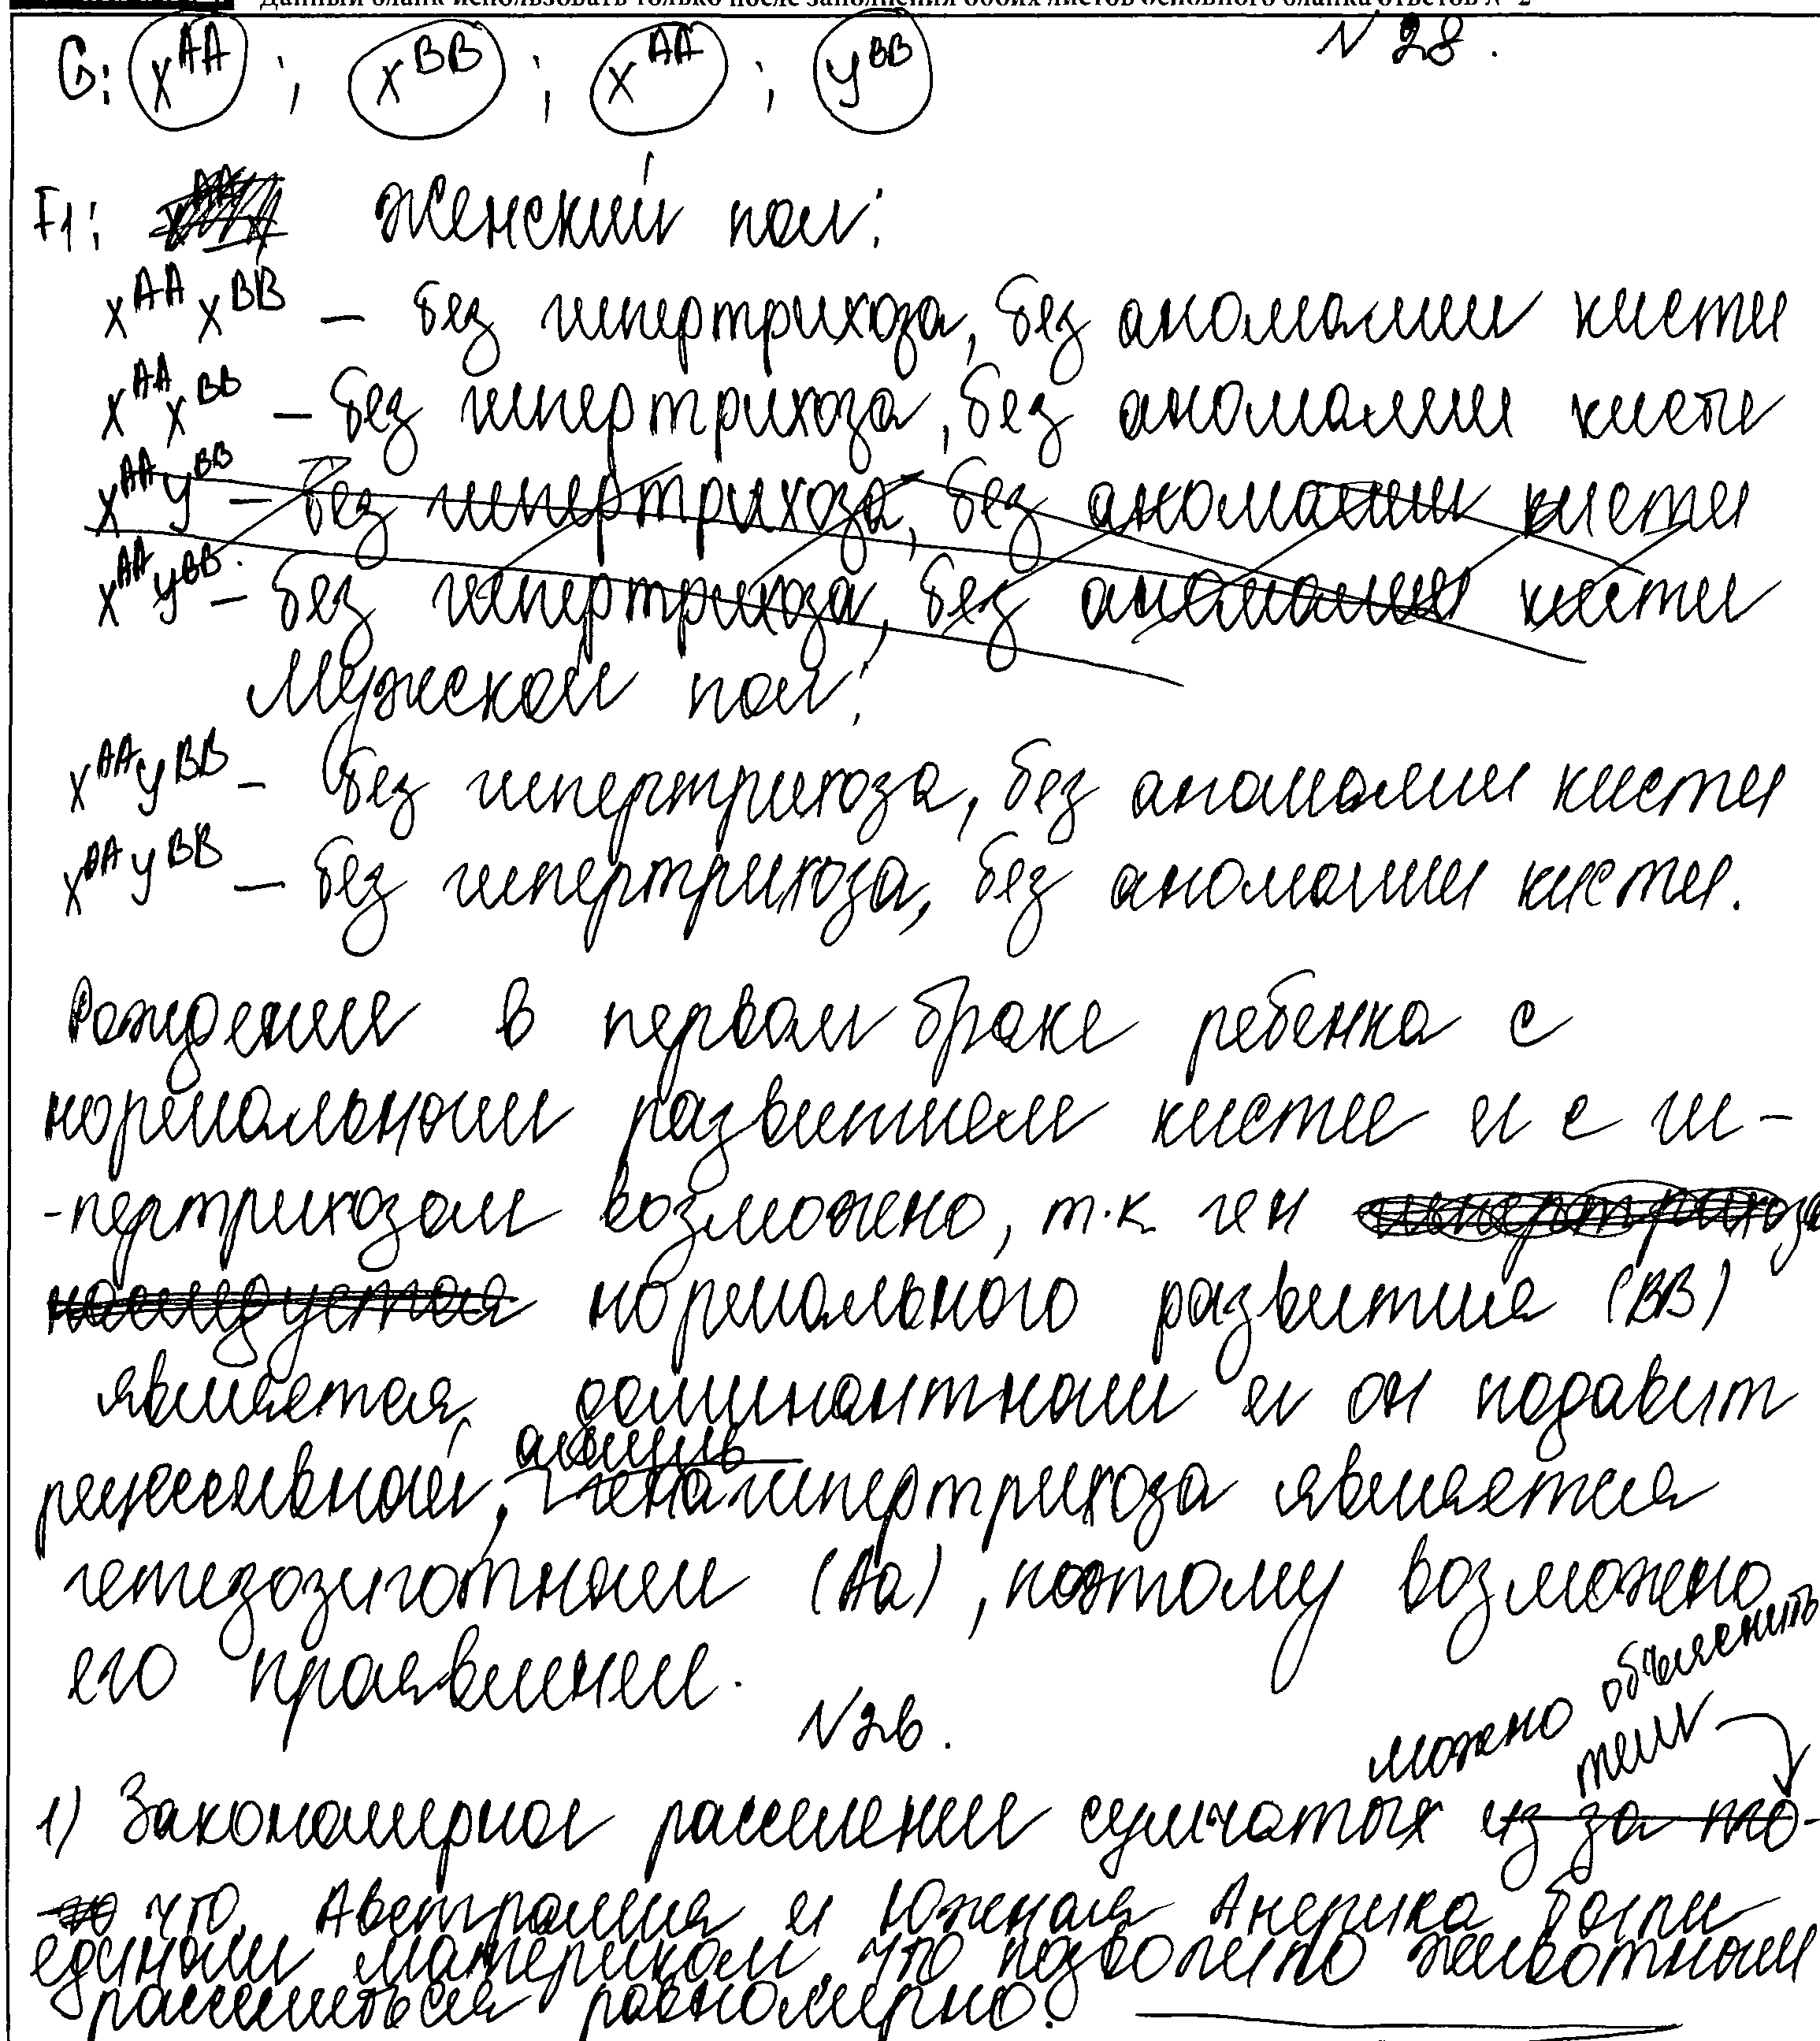 Данный бланк использовать только после заполнения обоих листов основного бланка ответов № 2
№ 28.
G: X^AA ; X^BB ; X^AA ; У^BB
F1: Женский пол:
X^AA X^BB – без гипертрихоза, без аномалии кисти
X^AA X^BB – без гипертрихоза, без аномалии кисти
X^AA У^BB – без гипертрихоза, без аномалии кисти
X^AA У^BB – без гипертрихоза, без аномалия кисти
Мужской пол:
X^AA У^BB – без гипертрихоза, без аномалии кисти
X^AA У^BB – без гипертрихоза, без аномалии кисти.
Рождения в первом браке ребенка с
нормальным развитием кисти и с ги-
-пертрихозом возможно, т.к ген гипертрихоза
наследуется нормального развития (BB)
является доминантным и он подавит
рецессивный, аллель гена гипертрихоза является
гетезозиготным (Аа), поэтому возможно
его проявление.
№ 26.
1) Закономерное расселение сумчатых из за то-
можно объяснить
тем
что Австралия и Южная Америка были
единым материком, что позволело животным
расселиться равномерно.